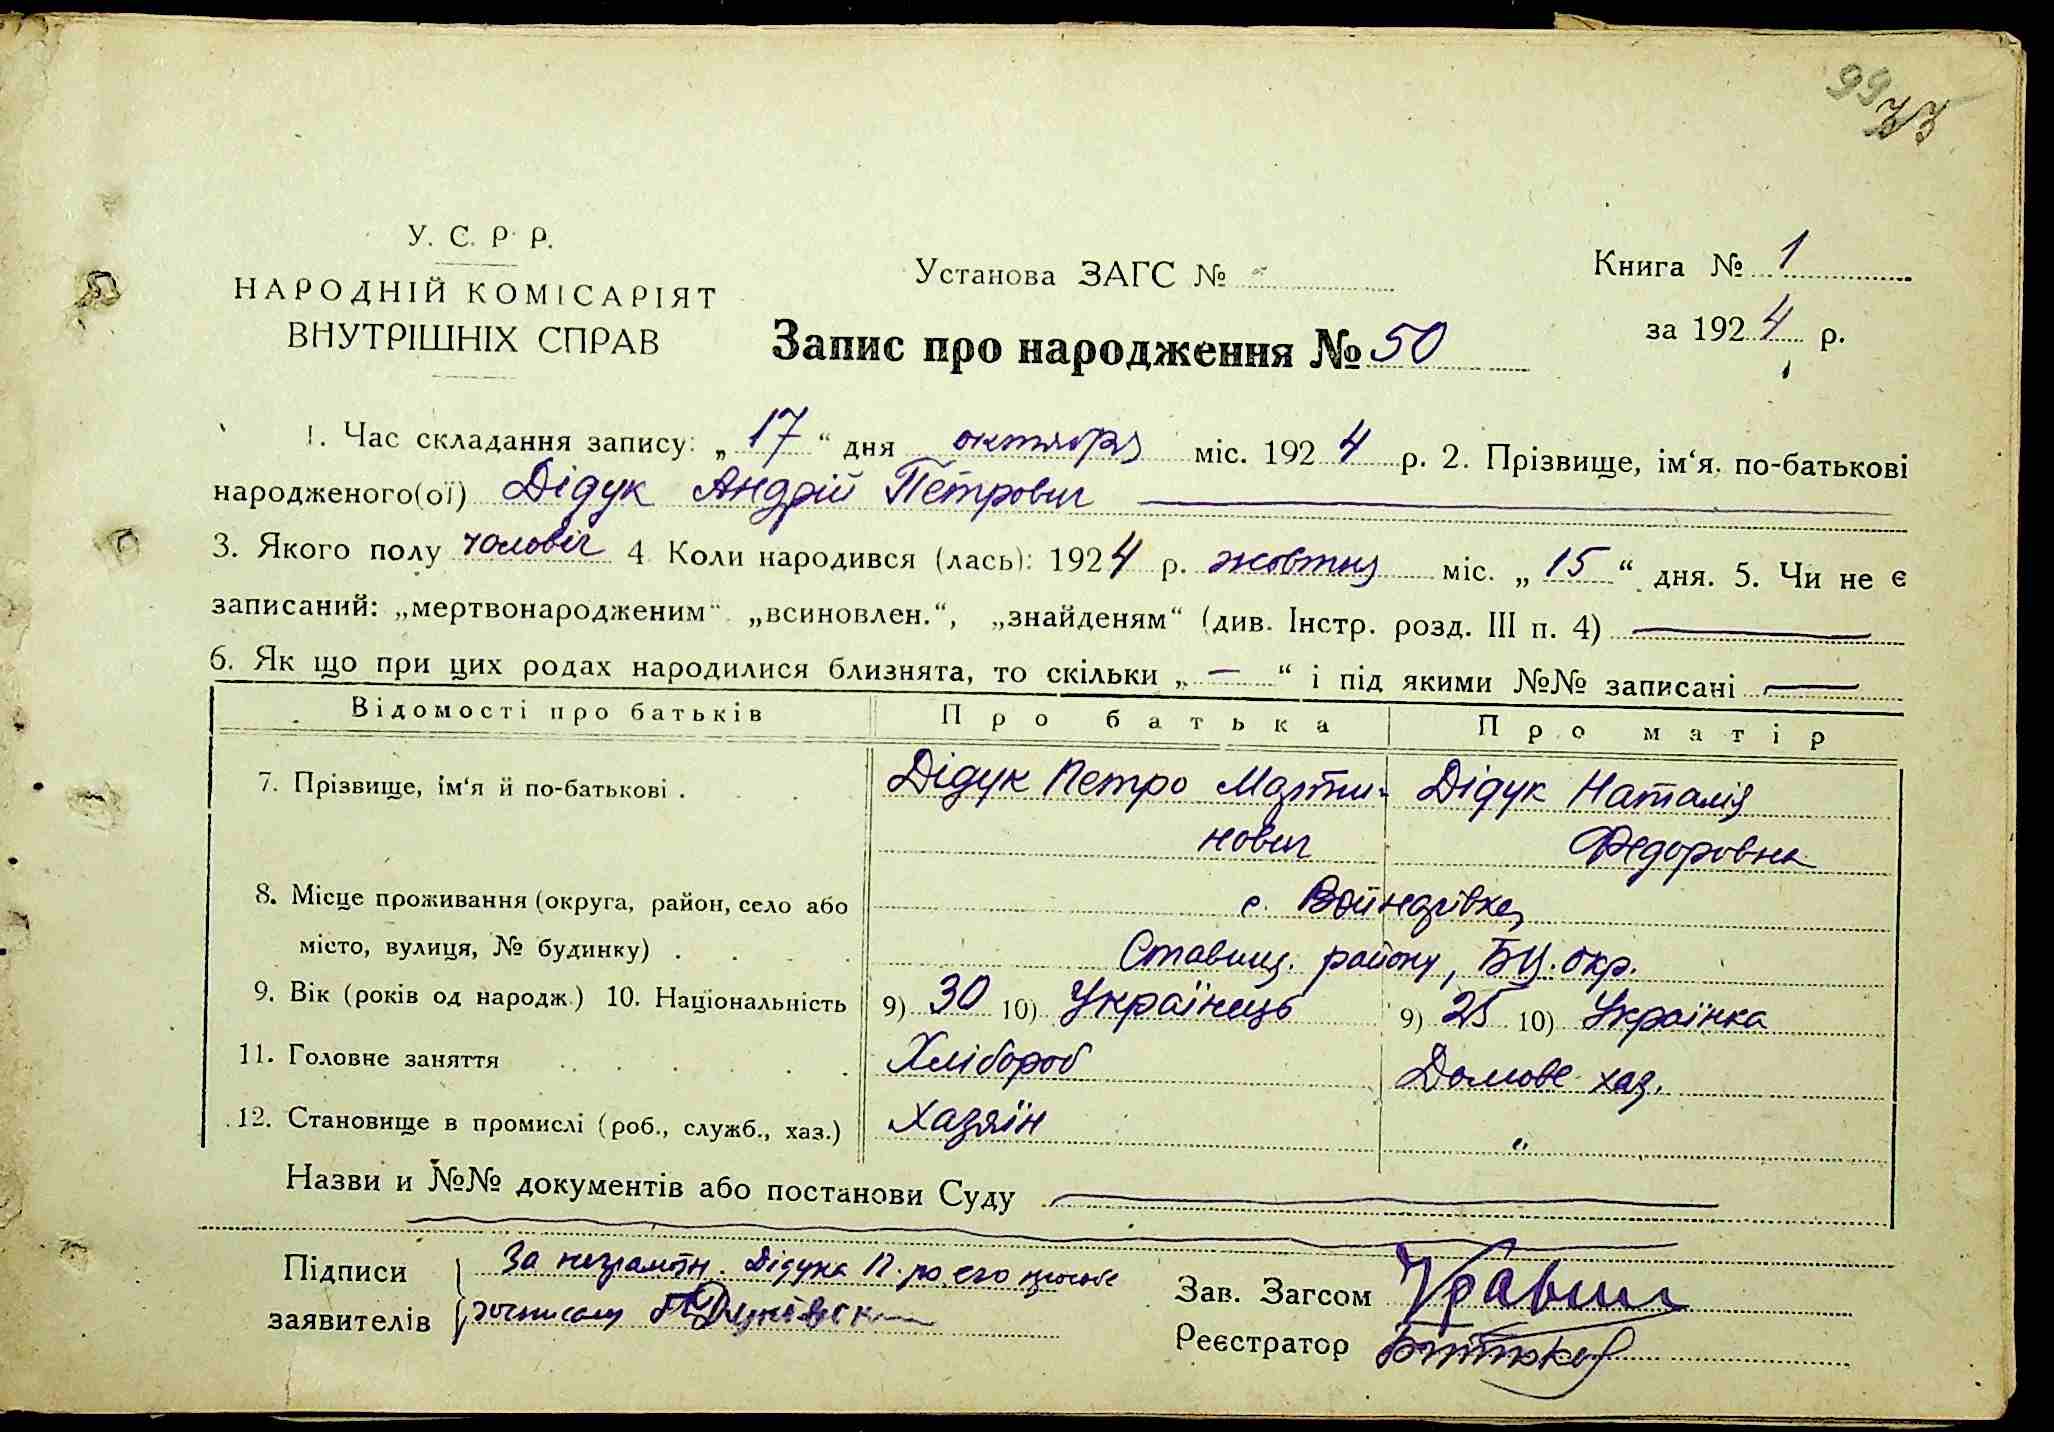 99
33
У. С. Р. Р.
НАРОДНІЙ КОМІСАРІЯТ
ВНУТРІШНІХ СПРАВ
Установа ЗАГС №
Книга № 1
за 1924 р.
Запис про народження № 50
1. Час складання запису: „17“ дня октября міс. 1924 р. 2. Прізвище, ім‘я, по-батькові
народженого(ої) Дідук Андрій Петрович
3. Якого полу чоловіч 4 Коли народився (лась): 1924 р. жовтня міс. „15“ дня. 5. Чи не є
записаний: „мертвонародженим“ „всиновлен.“, „знайденям“ (див. Інстр. розд. III п. 4) —
6. Як що при цих родах народилися близнята, то скільки „—“ і під якими №№ записані —
Відомості про батьків Про батька Про матір
7. Прізвище, ім‘я й по-батькові . Дідук Петро Марти- Дідук Наталія
нович Федоровна
8. Місце проживання (округа, район, село або с. Войнарівка,
місто, вулиця, № будинку) . Ставищ. району, БЦ. окр.
9. Вік (років од народж.) 10. Національність 9) 30 10) Українець 9) 25 10) Українка
11. Головне заняття Хлібороб Домове хаз.
12. Становище в промислі (роб., служб., хаз.) Хазяїн "
Назви и №№ документів або постанови Суду —
Підписи За неграмотн. Дідука П. по его прозьбе
заявителів
Зав. Загсом
Реєстратор